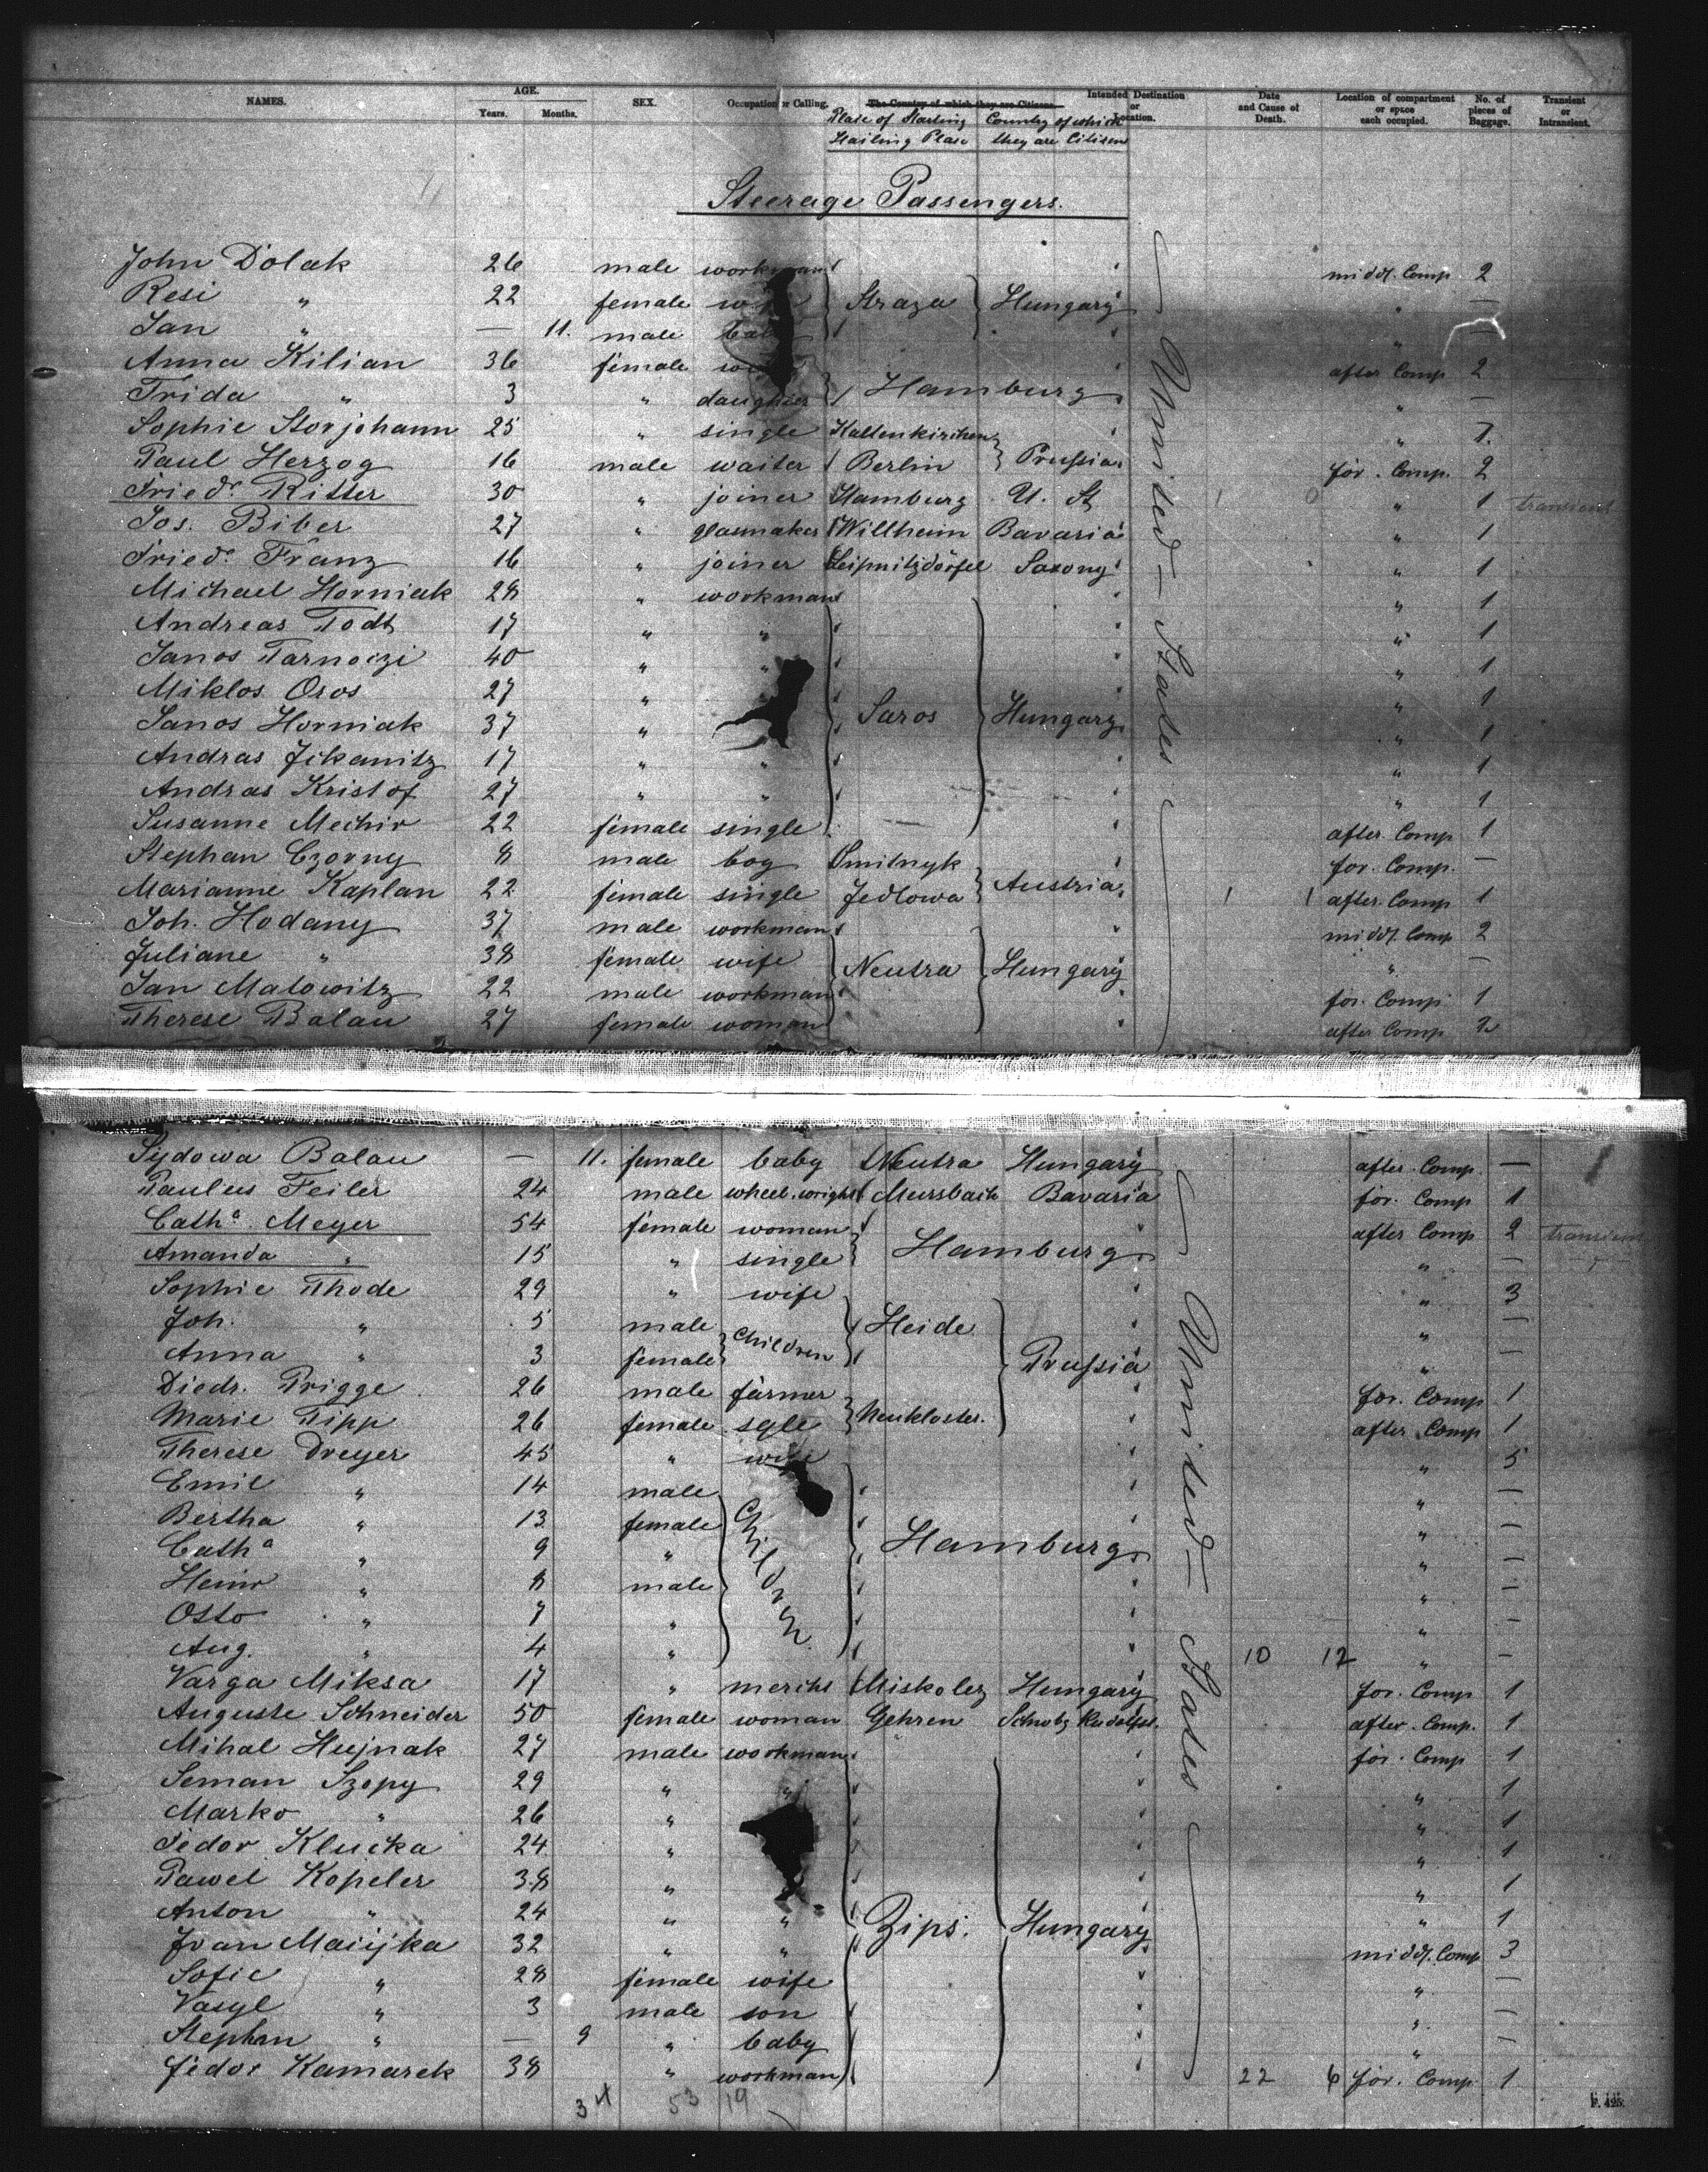 NAMES. AGE. Years. Months. SEX. Occupation or Calling. The Country of which they are Citizens. Intended Destination or Location. Date and Cause of Death. Location of compartment or space each occupied. No. of pieces of Baggage. Transient or Intransient.
Place of Starting Country of which
Hailing Place they are Citizens
Steerage Passengers.
John Dolak 26 male workman middl. Comp 2
Resi " 22 female wife Straza Hungary " —
Jan " — 11. male baby " —
Anna Kilian 36 female after Comp 2
Frida " 3 " daughter Hamburg " —
Sophie Storjohann 25 " single Kaltenkirchen " 1.
Paul Herzog 16 male waiter Berlin Prussia for. Comp. 2
Friedr. Ritter 30 " joiner Hamburg U. St 1 0 " 1 transient
Jos. Biber 27 " glasmaker Willheim Bavaria " 1
Friedr. Franz 16 " joiner Leipnitzdörfel Saxony " 1
Michael Horniak 28 " workman " 1
Andreas Todt 17 " " " 1
Janos Tarnoczi 40 " " " 1
Miklos Osos 27 " " 1
Janos Horniak 37 " Saros Hungary " 1
Andras Jikanitz 17 " " " 1
Andras Kristof 27 " " " 1
Susanne Mechir 22 female single after Comp 1
Stephan Czorny 8 male boy Smilnyk for. Comp. —
Marianne Kaplan 22 female single Jedlowa Austria 1 1 after Comp 1
Joh. Hodany 37 male workman middl. Comp 2
Juliane " 38 female wife Neutra Hungary " —
Jan Matowitz 22 male workman for. Comp 1
Therese Balau 27 female woman after Comp 2
United States
Sydowa Balau — 11. female baby Neutra Hungary after Comp. —
Paulus Feiler 24 male wheelwright Mursbach Bavaria for. Comp 1
Catha. Meyer 54 female woman after Comp 2 transient
Amanda " 15 " single Hamburg " —
Sophie Thode 29 " wife " 3
Joh. " 5 male Children Heide " —
Anna " 3 female Prussia " —
Diedr. Prigge 26 male farmer for. Comp 1
Marie Tipp 26 female sgle Neukloster. after Comp 1
Therese Dreyer 45 " wife " 5
Emil " 14 male " —
Bertha " 13 female Children " —
Catha " 9 " Hamburg " —
Heinr " 8 male " —
Otto " 7 " " —
Aug. " 4 " 10 12 " —
Varga Miksa 17 " mercht Miskolcz Hungary for. Comp 1
Auguste Schneider 50 female woman Gehren Schwbg Rudolfst. after Comp. 1
Mihal Hujnak 27 male workman for. Comp 1
Seman Szopy 29 " " " 1
Marko " 26 " " 1
Fedor Klucka 24 " " 1
Pawel Kopeler 38 " " 1
Anton " 24 " " Zips. Hungary " 1
Ivan Maicjka 32 " " middl. Comp 3
Sofie " 28 female wife " —
Vasyl " 3 male son " —
Stephan " — 9 " baby " —
Fedor Kamarek 38 " workman 22 6 for. Comp 1
United States
53 19
F. 425.